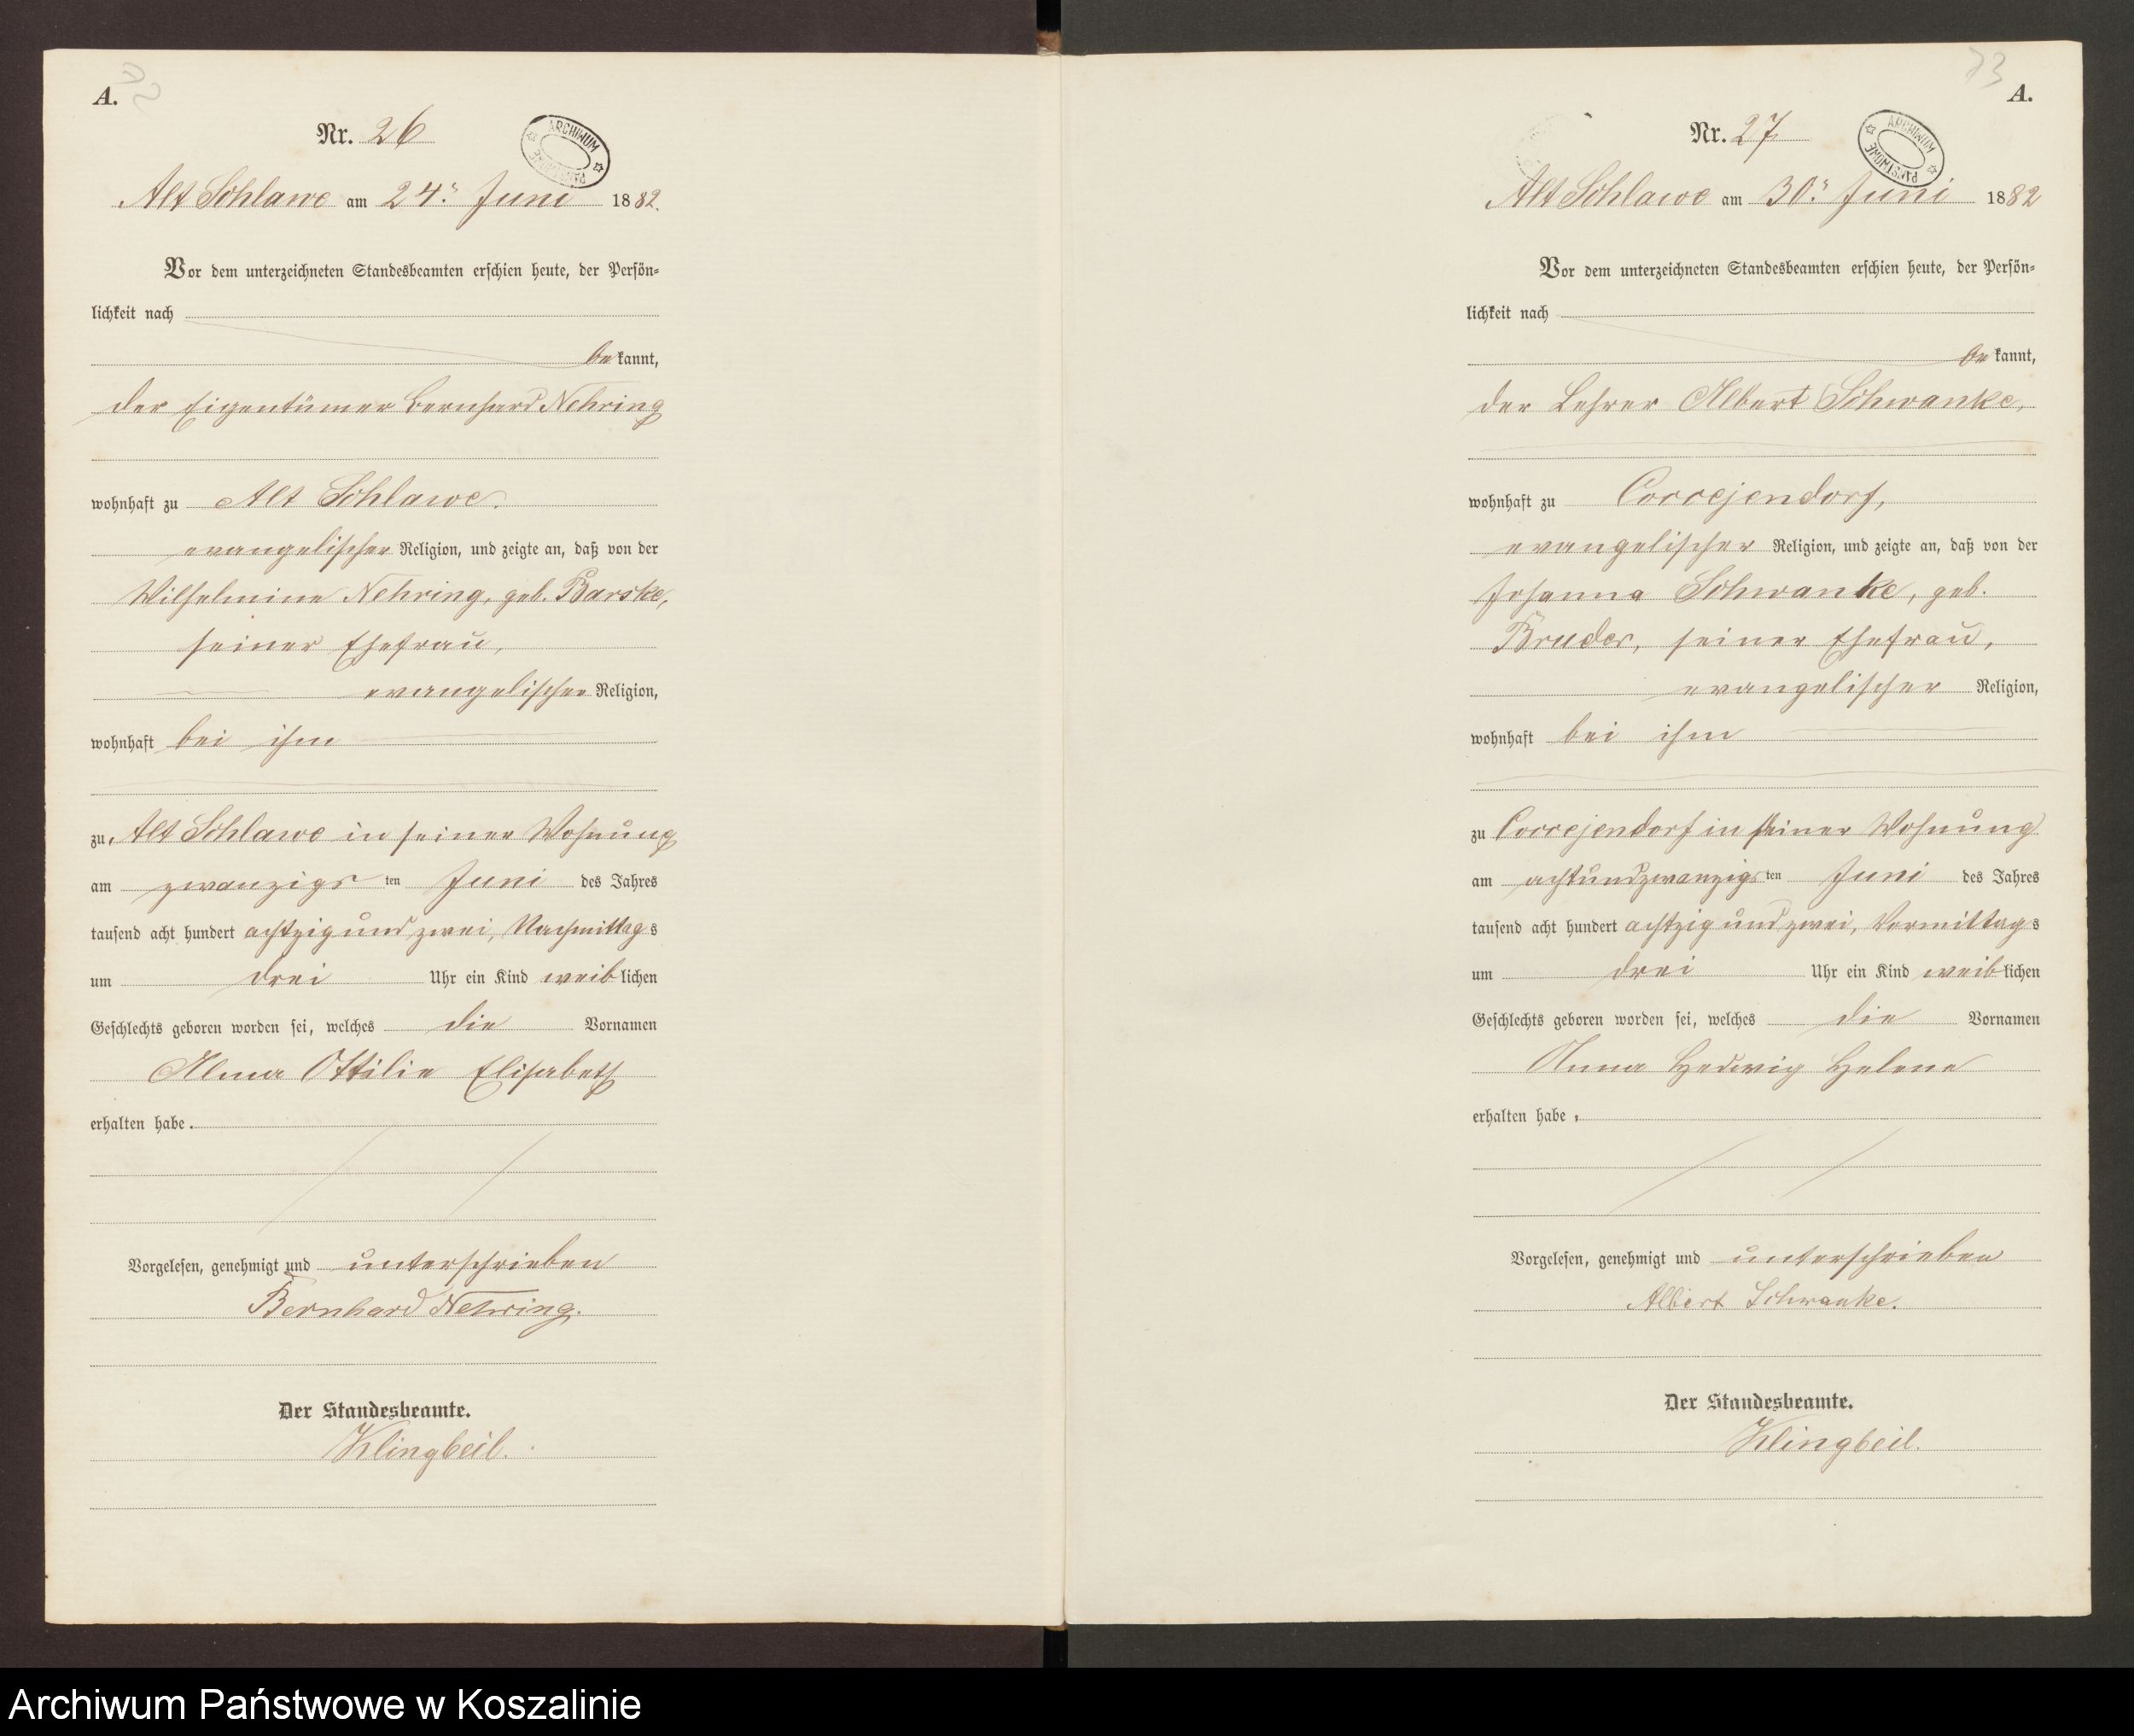 A.
Nr. 26
ARCHIWUM PAŃSTWOWE
Alt Schlawe am 24. Juni 1882.
Vor dem unterzeichneten Standesbeamten erschien heute, der Persön-
lichkeit nach
bekannt,
der Eigentümer Bernhard Nehring
wohnhaft zu Alt Schlawe,
evangelischer Religion, und zeigte an, daß von der
Wilhelmine Nehring, geb. Barske,
seiner Ehefrau,
evangelischer Religion,
wohnhaft bei ihm
zu Alt Schlawe in seiner Wohnung
am zwanzigsten Juni des Jahres
tausend acht hundert achtzig und zwei, Nachmittags
um drei Uhr ein Kind weiblichen
Geschlechts geboren worden sei, welches die Vornamen
Alma Ottilie Elisabeth
erhalten habe.
Vorgelesen, genehmigt und unterschrieben
Bernhard Nehring.
Der Standesbeamte.
Klingbeil.
73
A.
Nr. 27
ARCHIWUM PAŃSTWOWE
Alt Schlawe am 30. Juni 1882
Vor dem unterzeichneten Standesbeamten erschien heute, der Persön-
lichkeit nach
bekannt,
der Lehrer Albert Schwanke,
wohnhaft zu Coccejendorf,
evangelischer Religion, und zeigte an, daß von der
Johanna Schwanke, geb.
Bruder, seiner Ehefrau,
evangelischer Religion,
wohnhaft bei ihm
zu Coccejendorf in seiner Wohnung
am achtundzwanzigsten Juni des Jahres
tausend acht hundert achtzig und zwei, Vormittags
um drei Uhr ein Kind weiblichen
Geschlechts geboren worden sei, welches die Vornamen
Anna Hedwig Helene
erhalten habe.
Vorgelesen, genehmigt und unterschrieben
Albert Schwanke.
Der Standesbeamte.
Klingbeil.
Archiwum Państwowe w Koszalinie